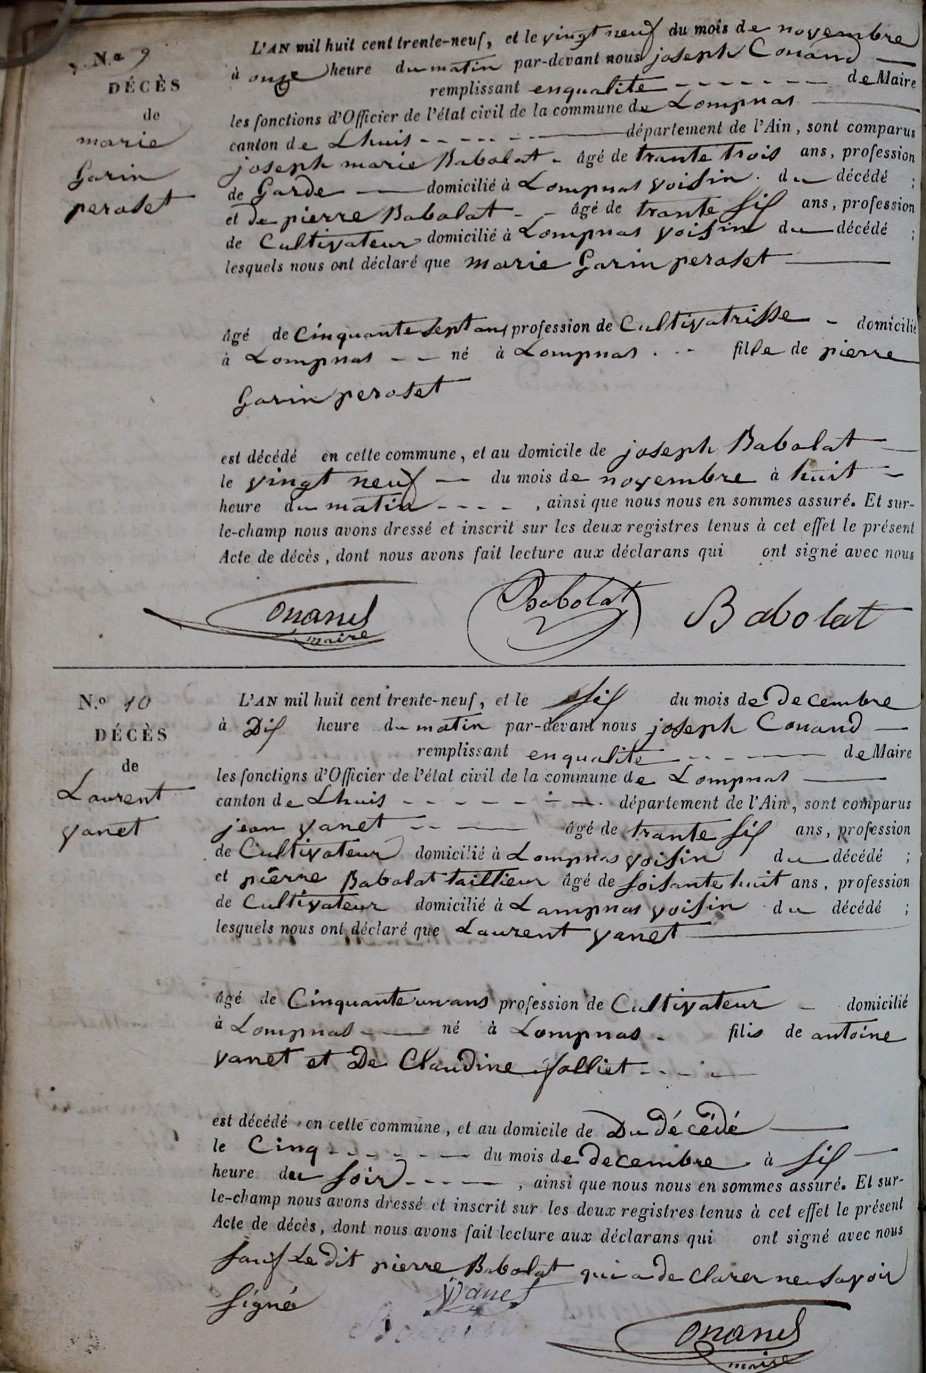 N.o 9
DÉCÈS
de
marie
Garin
peroset
L'AN mil huit cent trente-neuf, et le vingt neuf du mois de novembre
à onze heure du matin par-devant nous joseph Conand
remplissant enqualité de Maire
les fonctions d'Officier de l'état civil de la commune de Lompnas
canton de Lhuis département de l'Ain, sont comparus
joseph marie Babolat âgé de trante trois ans, profession
de Garde domicilié à Lompnas voisin du décédé ;
et de pierre Babolat âgé de trante sis ans, profession
de Cultivateur domicilié à Lompnas voisin du décédé ;
lesquels nous ont déclaré que marie Garin peroset
âgé de Cinquante sept ans profession de Cultivatrisse domicilié
à Lompnas né à Lompnas fille de pierre
Garin peroset
est décédé en cette commune, et au domicile de joseph Babolat
le vingt neuf du mois de novembre à huit
heure du matin , ainsi que nous nous en sommes assuré. Et sur-
le-champ nous avons dressé et inscrit sur les deux registres tenus à cet effet le présent
Acte de décès, dont nous avons fait lecture aux déclarans qui ont signé avec nous
Conand Babolat Babolat
maire
N.o 10
DÉCÈS
de
Laurent
vanet
L'AN mil huit cent trente-neuf, et le sis du mois de Decembre
à Dis heure du matin par-devant nous joseph Conand
remplissant enqualité de Maire
les fonctions d'Officier de l'état civil de la commune de Lompnas
canton de Lhuis département de l'Ain, sont comparus
jean vanet âgé de trante sis ans, profession
de Cultivateur domicilié à Lompnas voisin du décédé ;
et pierre Babolat taillieur âgé de soisante huit ans, profession
de Cultivateur domicilié à Lampnas voisin du décédé ;
lesquels nous ont déclaré que Laurent vanet
âgé de Cinquante un ans profession de Cultivateur domicilié
à Lompnas né à Lompnas filis de antoine
vanet et De Claudine jolliet
est décédé en cette commune, et au domicile de Du décédé
le Cinq du mois de decembre à sis
heure du soir , ainsi que nous nous en sommes assuré. Et sur-
le-champ nous avons dressé et inscrit sur les deux registres tenus à cet effet le présent
Acte de décès, dont nous avons fait lecture aux déclarans qui ont signé avec nous
sauf Le dit pierre Babolat qui a de clarer ne savoir
signé vanet
Conand
maire